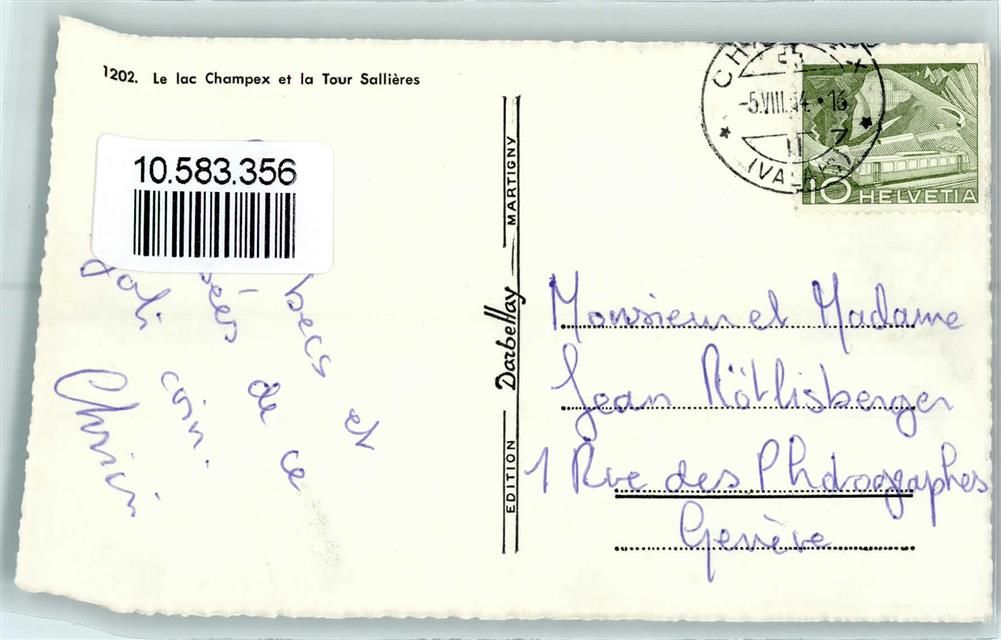 1202. Le lac Champex et la Tour Sallières
10.583.356
becs et
de ce
joli coin.
EDITION Darbellay MARTIGNY
-5.VIII.54.-16
10 HELVETIA
Monsieur et Madame
Jean Röthlisberger
1 Rue des Photographes
Genève